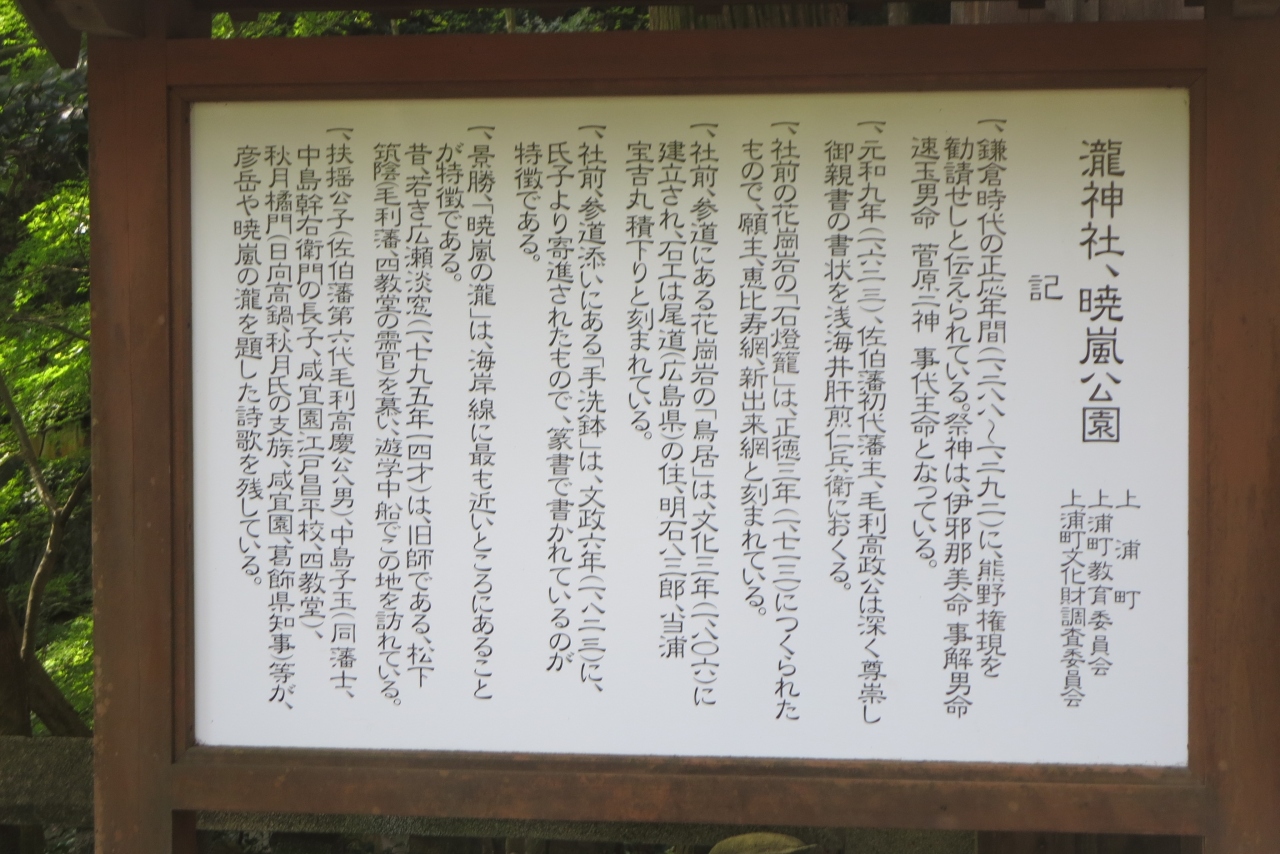 瀧神社、暁嵐公園
上浦町
上浦町教育委員会
上浦町文化財調査委員会
記
一、鎌倉時代の正応年間(一、二八八～一、二九二)に、熊野権現を
勧請せしと伝えられている。祭神は、伊邪那美命 事解男命
速玉男命 菅原二神 事代主命となっている。
一、元和九年(一、六二三)、佐伯藩初代藩主、毛利高政公は深く尊崇し
御親書の書状を浅海井肝煎仁兵衛におくる。
一、社前の花崗岩の「石燈籠」は、正徳三年(一、七一三)につくられた
もので、願主、恵比寿網、新出来網と刻まれている。
一、社前、参道にある花崗岩の「鳥居」は、文化三年(一、八〇六)に
建立され、石工は尾道(広島県)の住、明石八三郎、当浦
宝吉丸積下りと刻まれている。
一、社前、参道添いにある「手洗鉢」は、文政六年(一、八二三)に、
氏子より寄進されたもので、篆書で書かれているのが
特徴である。
一、景勝、「暁嵐の瀧」は、海岸線に最も近いところにあること
が特徴である。
昔、若き広瀬淡窓(一、七九五年一四才)は、旧師である、松下
筑陰(毛利藩、四教堂の霈官)を慕い、遊学中船でこの地を訪れている。
一、扶揺公子(佐伯藩第六代毛利高慶公八男)、中島子玉(同藩士、
中島幹右衛門の長子、咸宜園江戸昌平校、四教堂)、
秋月橘門(日向高鍋、秋月氏の支族、咸宜園、葛飾県知事)等が、
彦岳や暁嵐の瀧を題した詩歌を残している。